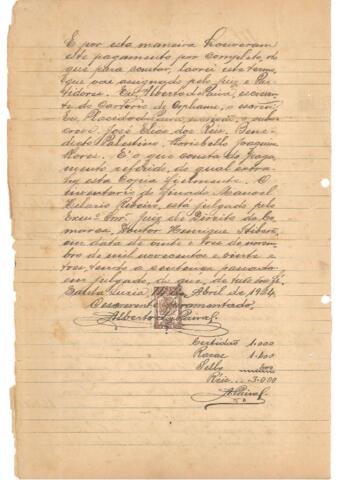 E por esta maneira houveram
este pagamento por completo, do
que para constar, lavrei este termo,
que vai assignado pelo juiz e Par-
tidores. Eu, Alberto de Paiva, escreven-
te do Cartorio de Orphams, o escrevi.
Eu, Placido de Paiva, escrivão, o subs-
crevi. José Elias dos Reis, Bene-
dicto Palestino, Joaquim
Flores. E' o que consta do paga-
mento referido, do qual extra-
hy esta Copia fielmente. O
inventario do finado Manoel
Hilario Ribeiro, está julgado pelo
Exmº Snr. juiz de Direito da Co-
marca, Doutor Henrique
em data de vinte e tres de novem-
bro de mil novecentos e vinte e
tres, tendo a sentença passado
em julgado, do que, de tudo dou fé.
Santa Luzia, de Abril de 1924.
O escrevente juramentado,
Alberto de Paiva
Certidão 1.000
Raza 1.400
Sello 600
Reis ... 3.000
A. Paiva